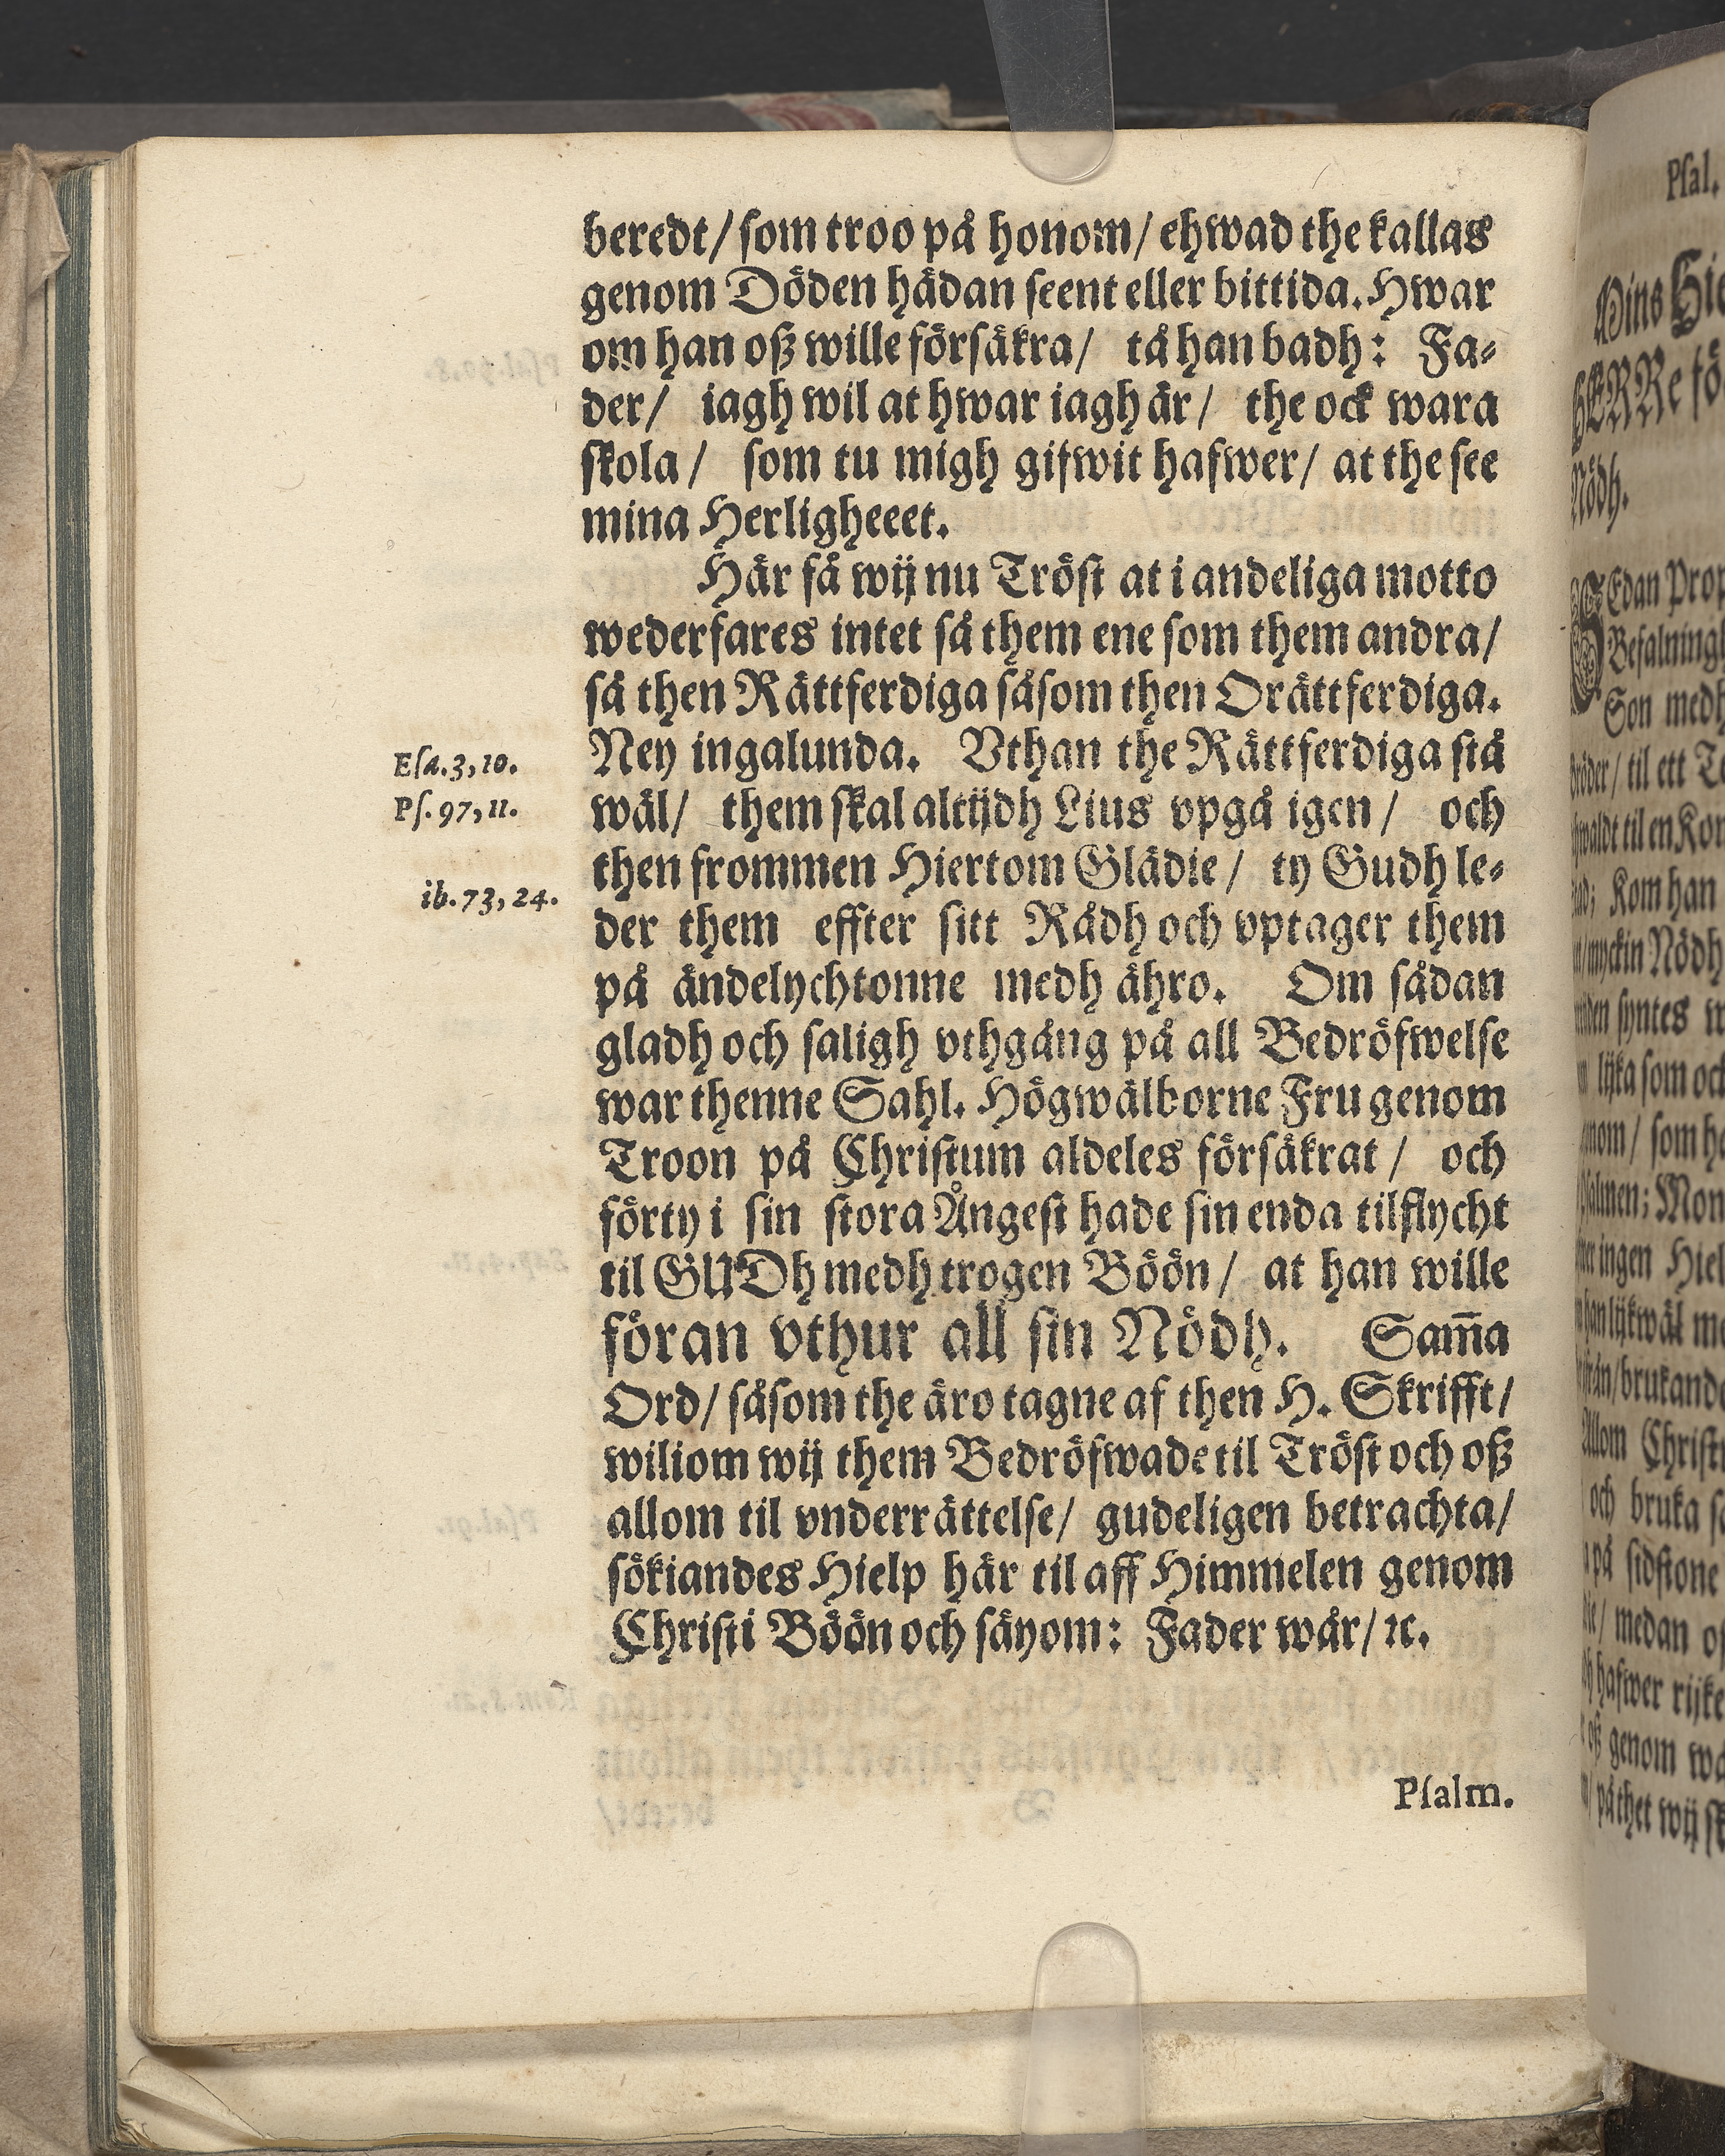 beredt/ ſom troo på honom/ ehwad the kallas
genom Döden hädan ſeent eller bittida. Hwar
om han oß wille förſäkra/ tå han badh: Fa-
der/ iagh wil at hwar iagh är/ the ock wara
ſkola/ ſom tu migh gifwit hafwer/ at the ſee
mina Herligheeet.
Här få wij nu Tröſt at i andeliga motto
wederfares intet ſå them ene ſom them andra/
ſå then Rättferdiga ſåſom then Orättferdiga.
Eſa. 3, 10.
Ney ingalunda. Vthan the Rättferdiga ſtå
Pſ. 97, 11.
wäl/ them ſkal altijdh Lius vpgå igen/ och
then frommen Hiertom Glädie/ ty Gudh le-
ib. 73, 24.
der them effter ſitt Rådh och vptager them
på ändelychtonne medh ähro. Om ſådan
gladh och ſaligh vthgång på all Bedröfwelſe
war thenne Sahl. Högwälborne Fru genom
Troon på Chriſtum aldeles förſäkrat/ och
förty i ſin ſtora Ångeſt hade ſin enda tilflycht
til GUDh medh trogen Böön/ at han wille
föran vthur all ſin Nödh. Sam̃a
Ord/ ſåſom the äro tagne af then H. Skrifft/
wiliom wij them Bedröfwade til Tröſt och oß
allom til vnderrättelſe/ gudeligen betrachta/
ſökiandes Hielp här til aff Himmelen genom
Chriſti Böön och ſäyom: Fader wår/ ꝛc.
Pſalm.
Pſal.
Nödh.
Son medh